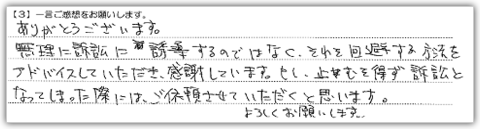 【3】一言ご感想をお願いします。
ありがとうございます。
無理に訴訟に誘導するのではなく、それを回避する方法を
アドバイスしていただき、感謝しています。もし、止むを得ず訴訟と
なってしまった際には、ご依頼させていただくと思います。
よろしくお願いします。